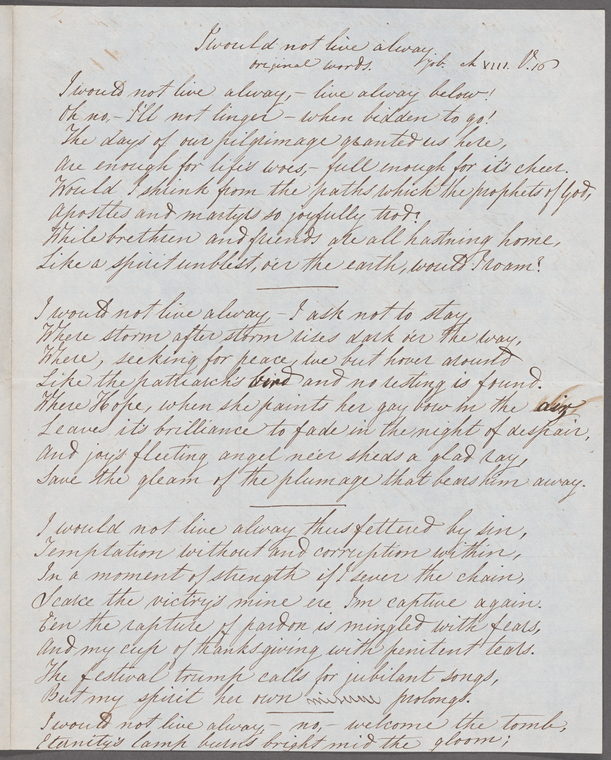 I would not live alway
original words. Job. ch VIII. V. 16
I would not live alway, - live alway below!
Oh no, - I'll not linger - when bidden to go!
The days of our pilgrimage granted us here,
Are enough for life's woes, - full enough for it's cheer.
Would I shrink from the paths which the prophets of God,
Apostles and martyrs so joyfully trod?
While brethren and friends are all hast'ning home,
Like a spirit unblest, o'er the earth, would I roam?
I would not live alway - I ask not to stay,
Where storm after storm rises dark o'er the way,
Where, seeking for peace, we but hover around
Like the patriarch's bird and no resting is found.
Where Hope, when she paints her gay bow in the air
Leaves it's brilliance to fade in the night of despair,
And joy's fleeting angel ne'er sheds a glad ray,
Save the gleam of the plumage that bears him away.
I would not live alway, thus fettered by sin,
Temptation without and corruption within,
In a moment of strength if I sever the chain,
Scarce the victry's mine ere I'm captive again.
E'en the rapture of pardon is mingled with fears,
And my cup of thanksgiving with penitent tears.
The festival trump calls for jubilant songs,
But my spirit her own prolongs.
I would not live alway, - no, - welcome the tomb,
Eternity's lamp burns bright mid the gloom;